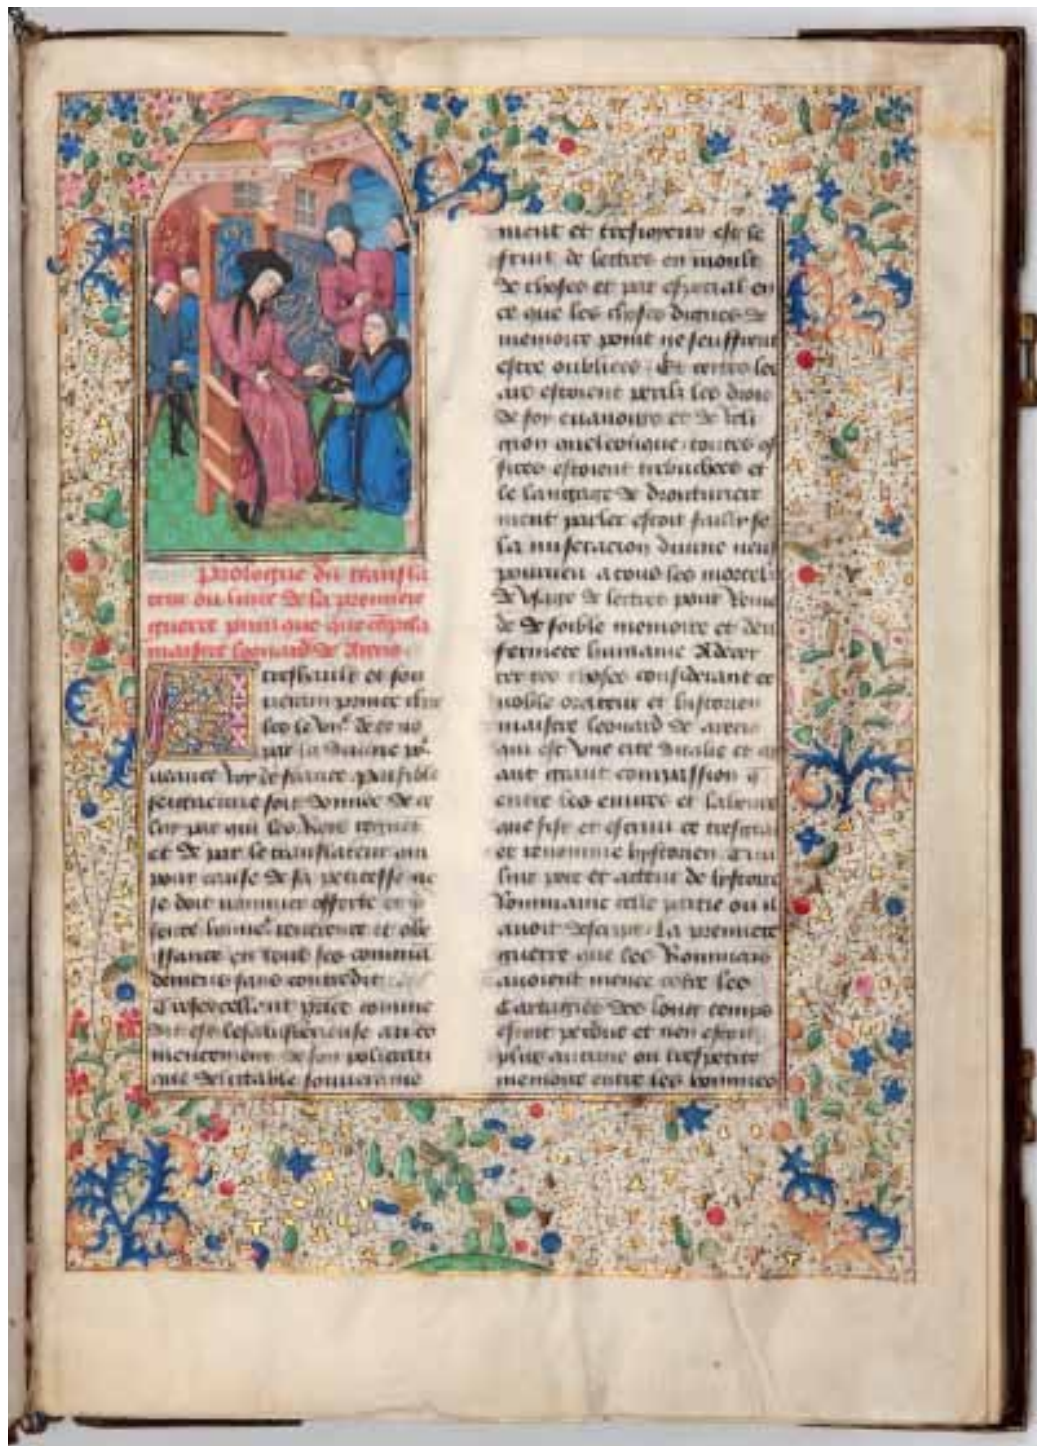 Prologue du transla
teur ou livre de la premiere
guerre punique que compila
maistre leonard de Arecio
A treshault et sou
verain prince char
les le vii.e de ce no
par la divine
roy de france paisible
seigneurie soit donnee de ce
luy par qui les Roys regnent
et de par le translateur qui
pour cause de sa petitesse ne
se doit nommer offerte et
reverence et obe
issance en tous ses comma
demens sans contredit
Tresexcellent prince comme
dit est
mencement de son policrati
que delectable souveraine
ment et tresioyeux est le
fruit de lettres en moult
de choses et par especial en
ce que les choses dignes de
memoire point ne seuffrent
estre oubliees Et certes les
ars estoient peris les drois
de foy evanouis et de reli
gion quelconque toutes
estoient trebuchees et
le langage de droituriere
ment parler estoit failly se
la miseracion divine neust
pourveu a tous les mortelz
de usage de lettres pour
de de foible memoire et de
fermete humaine A decer
choses considerant ce
noble orateur et historien
maistre leonard de arecio
qui est une cite ditalie et
ant grant compassion
entre les euvres et labeurs
que fist et escrivi ce
et renomme hystorien
live pere et acteur de hystoire
Rommaine celle partie ou il
avoit descript la premiere
guerre que les Rommains
avoient menee contre les
Cartagiens des long temps
estoit perdue et non estoit
plus aucune ou trespetite
memoire entre les hommes